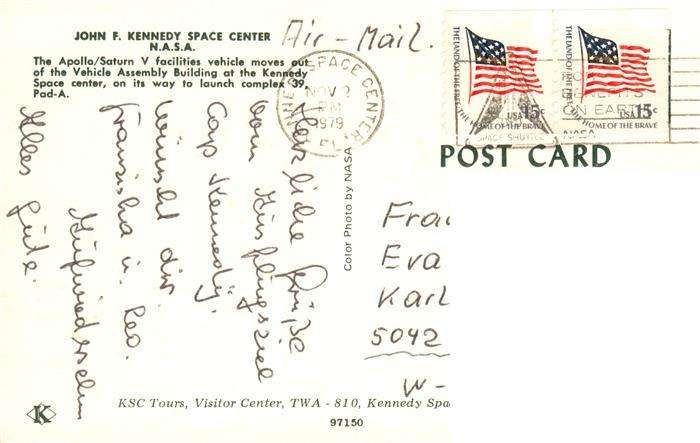 JOHN F. KENNEDY SPACE CENTER
N.A.S.A.
The Apollo/Saturn V facilities vehicle moves out
of the Vehicle Assembly Building at the Kennedy
Space center, on its way to launch complex 39,
Pad-A.
Air-Mail.
SPACE CENTER
NOV 2
PM
1979
FL
THE LAND OF THE FREE, THE HOME OF THE BRAVE
USA 15c
THE LAND OF THE FREE, THE HOME OF THE BRAVE
USA 15c
ON EARTH
SPACE SHUTTLE
NASA
POST CARD
Herzliche Grüße
vom Ausflugsziel
Cap Kennedy,
wünscht dir
Franziska u. Leo.
Aufwiedersehen
Alles Gute.
Color Photo by NASA
Frau
Eva
Karl
5042
W-
K
KSC Tours, Visitor Center, TWA - 810, Kennedy Spa
97150